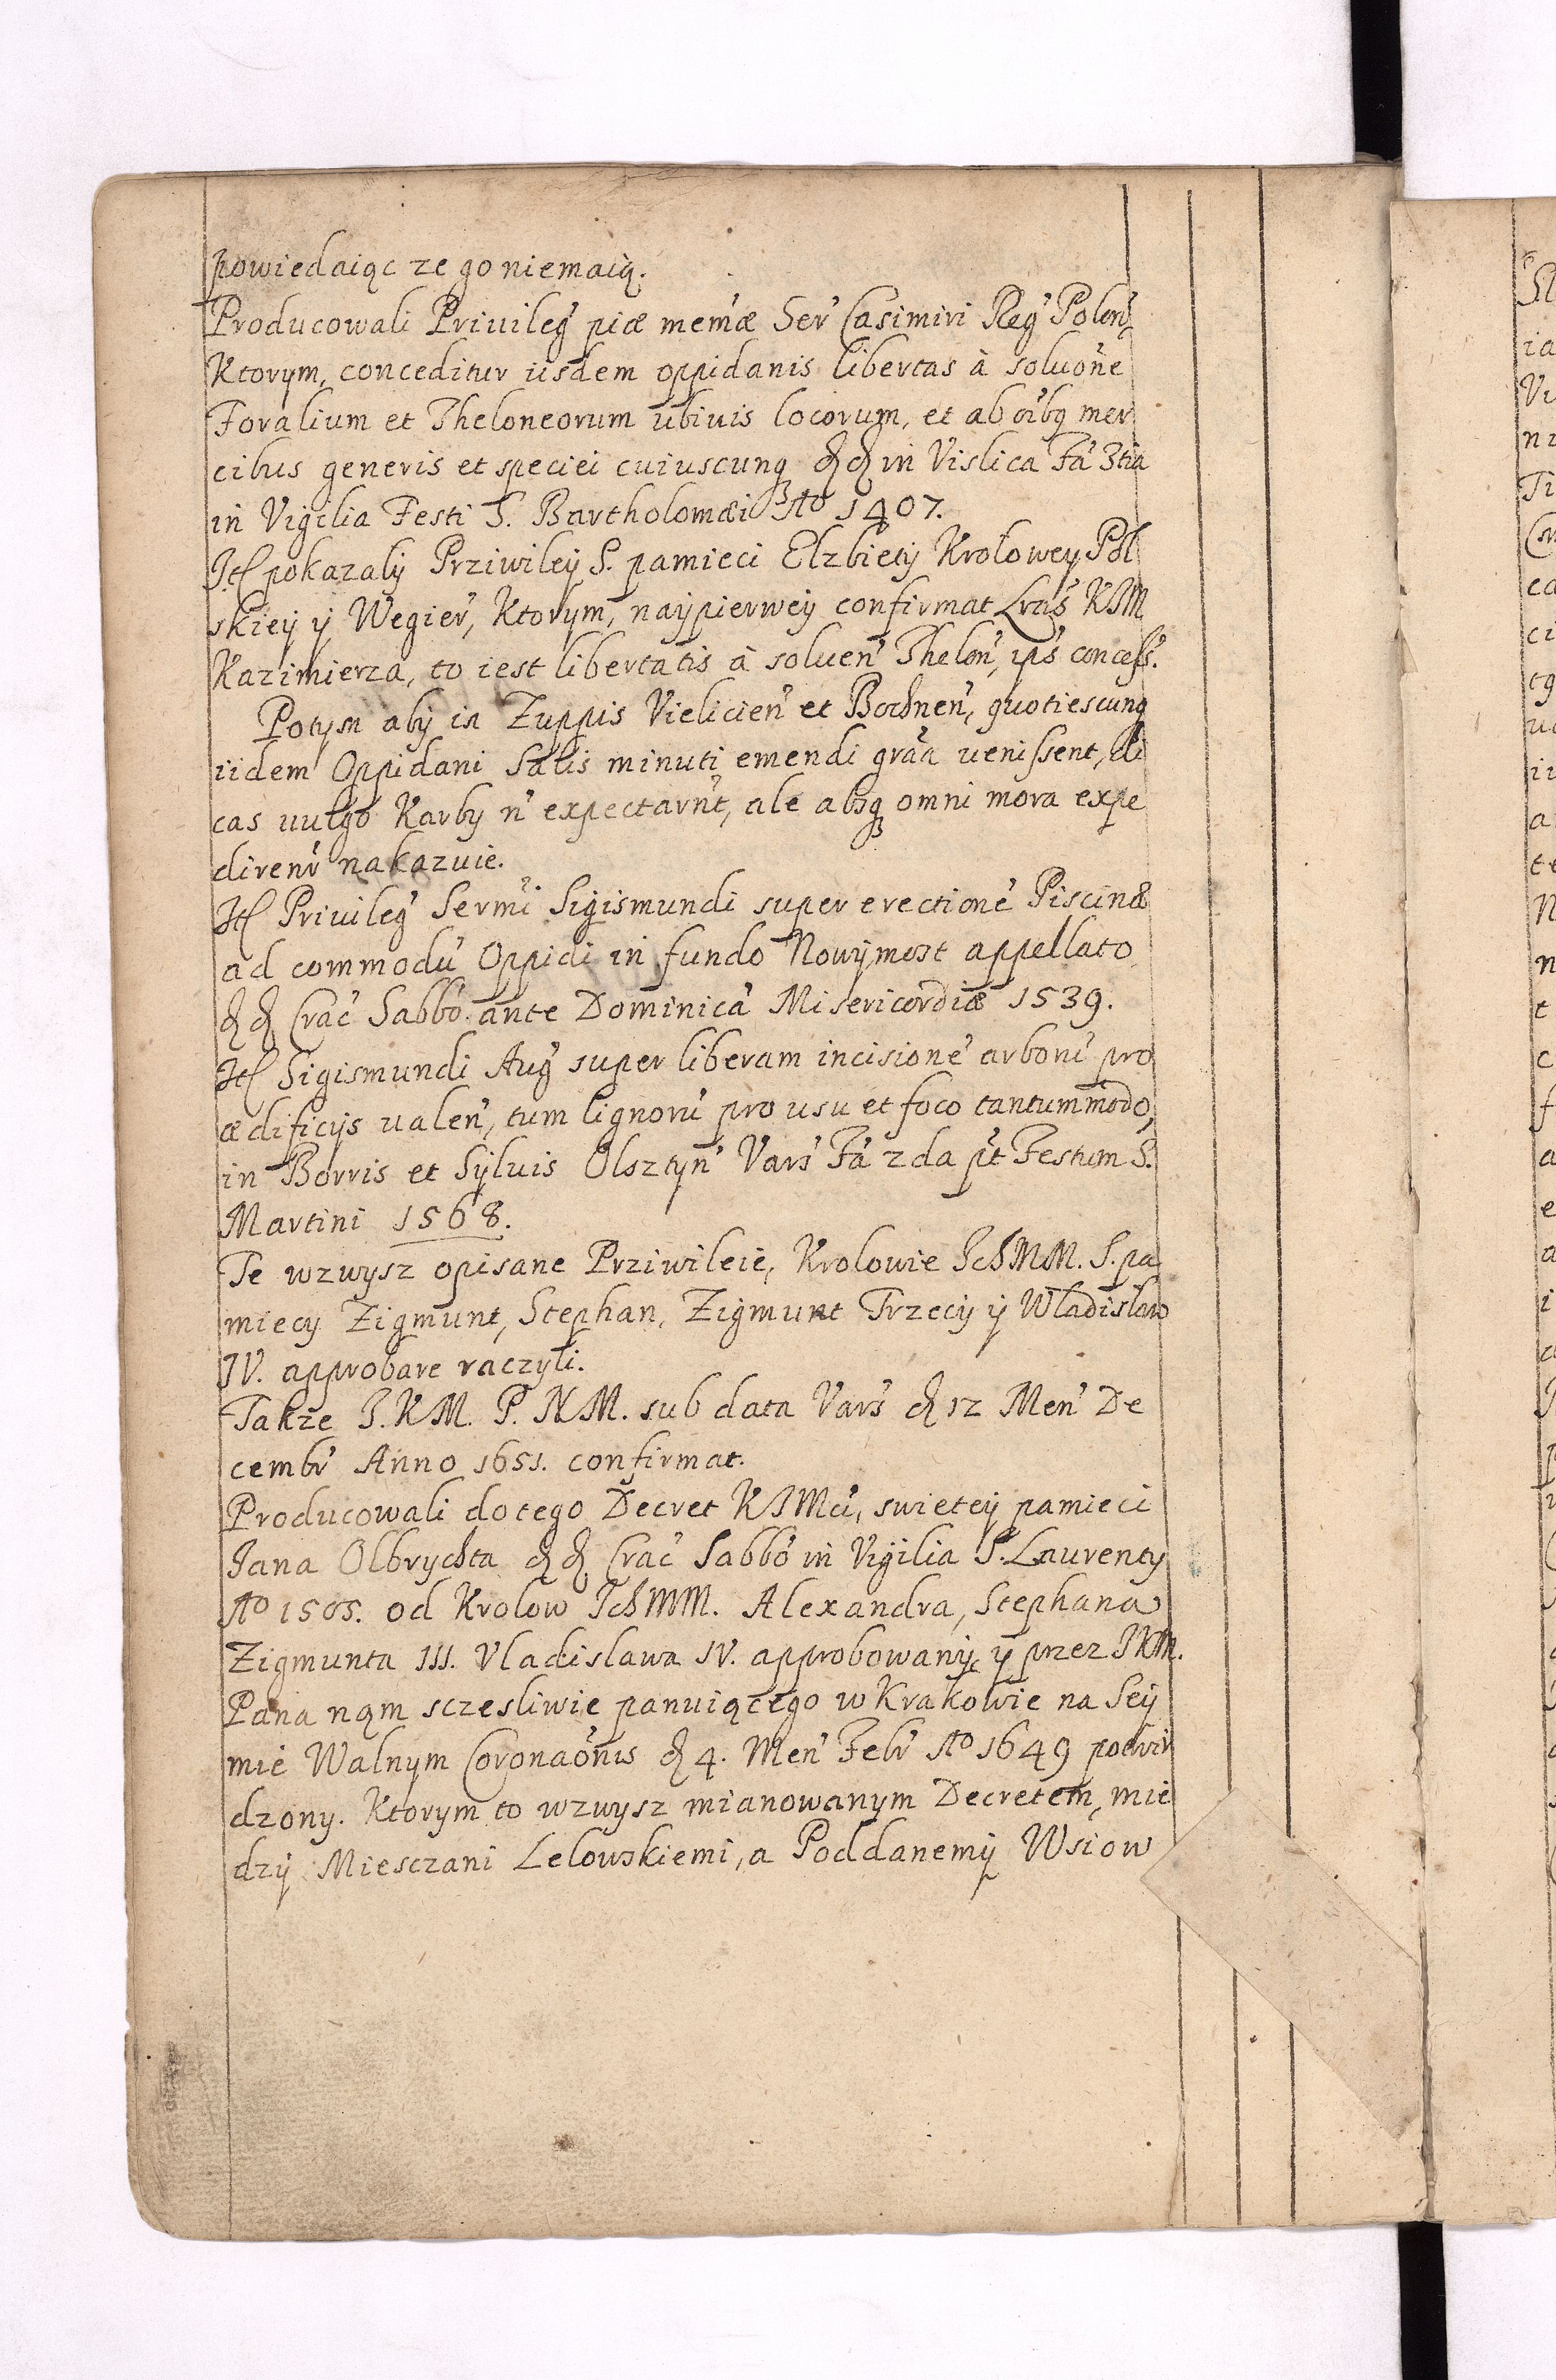 powiedaiąc ze go niemaią.
Producowali Priuileg' piæ mem'æ Ser' Casimiri Reg' Polon',
Ktorym, conceditur iisdem oppidanis libertas à soluo'ne
Foralium et Theloneorum ubiuis locorum, et ab o'ibq mer
cibus generis et speciei cuiuscunq d d in Vislica Fa' 3tia
in Vigilia Festi S. Bartholomæi Ao 1407.
Jt pokazaly Prziwiley S. pamieci Elzbiety Krolowey Pol
skiey y Wegier', Ktorym, naypierwey confirmat Lras KJM
Kazimierza, to iest libertatis à soluen' Thelon', ips' concess'.
Potym aby in Zuppis Vielicien' et Bochnen', quotiescunq
iidem Oppidani Salis minuti emendi gra'a uenissent, di
cas uulgo Karby n' expectarn't, ale absq omni mora expe
diren'r nakazuie.
Jt Priuileg' Sermi' Sigismundi super erectione' Piscinæ
ad commodu' Oppidi in fundo Nowymost appellato
d d Crac' Sabbo' ante Dominica' Misericordiæ 1539.
Jt Sigismundi Aug' super liberam incisione' arboru' pro
ædificijs ualen', tum lignoru' pro usu et foco tantummodo,
in Borris et Syluis Olsztyn' Vars' Fa' 2da p't Festum S.
Martini 1568.
Te wzwysz opisane Prziwileie, Krolowie JchMM. S. pa
miecy Zigmunt, Stephan, Zigmunt Trzeciy y Wladislaw
IV. approbare raczyli.
Takze J.KM. P. NM. sub data Vars' d 12 Men' De
cembr' Anno 1651. confirmat.
Producowali do tego Decret KJMci, swietey pamieci
Jana Olbrychta d d Crac' Sabbo' in Vigilia S. Laurenty
Ao 1505. od Krolow JchMM. Alexandra, Stephana
Zigmunta III. Vladislawa IV. approbowany, y przez JKM.
Pana nąm sczesliwie panuiącego w Krakowie na Sey
mie Walnym Coronao'nis d 4. Men' Febr' Ao 1649 potwir
dzony. Ktorym to wzwysz mianowanym Decretem, mie
dzy Miesczani Lelowskiemi, a Poddanemy Wsiow